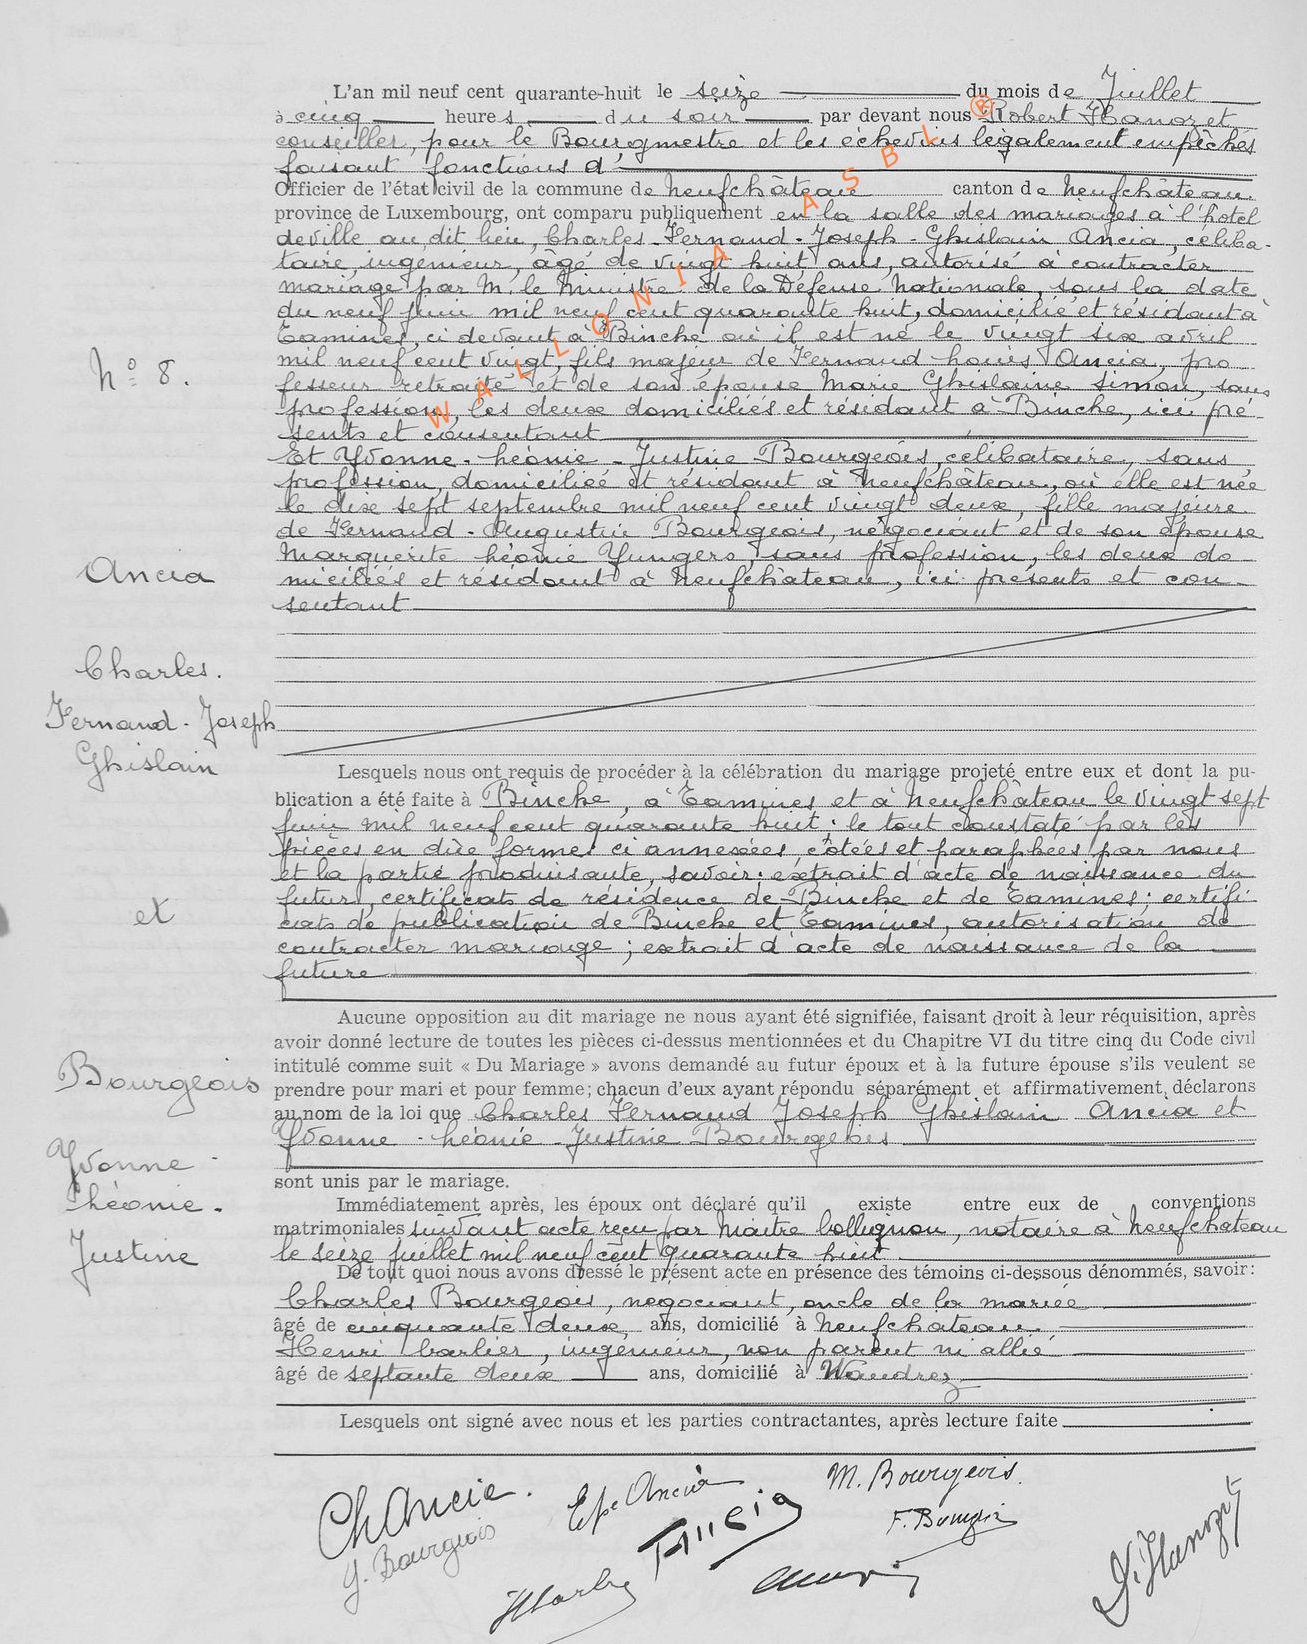 L'an mil neuf cent quarante-huit le seize du mois de Juillet
à cinq heures du soir par devant nous Robert Hanozet
conseiller, pour le Bourgmestre et les échevins légalement empêchés
faisant fonctions d'
Officier de l'état civil de la commune de Neufchâteau canton de Neufchâteau
province de Luxembourg, ont comparu publiquement en la salle des mariages à l'hôtel
de ville au dit lieu, Charles-Fernand-Joseph-Ghislain Ancia, céliba-
taire, ingénieur, âgé de vingt huit ans, autorisé à contracter
mariage par M. le Ministre de la Défense Nationale, sous la date
du neuf juin mil neuf cent quarante huit, domicilié et résidant à
Tamines, ci devant à Binche où il est né le vingt six avril
mil neuf cent vingt, fils majeur de Fernand Louis Ancia, pro
fesseur retraité et de son épouse Marie Ghislaine Simon, sans
profession, les deux domiciliés et résidant à Binche, ici pré-
sents et consentant
Et Yvonne-Léonie-Justine Bourgeois, célibataire, sans
profession, domiciliée et résidant à Neufchâteau, où elle est née
le dix sept septembre mil neuf cent vingt deux, fille majeure
de Fernand-Augustin Bourgeois, négociant et de son épouse
Marguerite Léonie Yungers, sans profession, les deux do
miciliés et résidant à Neufchâteau, ici présents et con-
sentant
N° 8.
Ancia
Charles.
Fernand-Joseph
Ghislain
et
Bourgeois
Yvonne-
Léonie-
Justine
Lesquels nous ont requis de procéder à la célébration du mariage projeté entre eux et dont la pu-
blication a été faite à Binche, à Tamines et à Neufchâteau le vingt sept
juin mil neuf cent quarante huit; le tout constaté par les
pièces en due forme ci annexées, côtées et paraphées par nous
et la partie produisante, savoir: extrait d'acte de naissance du
futur, certificats de résidence de Binche et de Tamines; certifi
cats de publication de Binche et Tamines, autorisation de
contracter mariage; extrait d'acte de naissance de la
future
Aucune opposition au dit mariage ne nous ayant été signifiée, faisant droit à leur réquisition, après
avoir donné lecture de toutes les pièces ci-dessus mentionnées et du Chapitre VI du titre cinq du Code civil
intitulé comme suit « Du Mariage » avons demandé au futur époux et à la future épouse s'ils veulent se
prendre pour mari et pour femme; chacun d'eux ayant répondu séparément et affirmativement, déclarons
au nom de la loi que Charles Fernand Joseph Ghislain Ancia et
Yvonne-Léonie-Justine Bourgeois
sont unis par le mariage.
Immédiatement après, les époux ont déclaré qu'il existe entre eux de conventions
matrimoniales suivant acte reçu par Maître Collignon, notaire à Neufchateau
le seize juillet mil neuf cent quarante huit
De tout quoi nous avons dressé le présent acte en présence des témoins ci-dessous dénommés, savoir:
Charles Bourgeois, négociant, oncle de la mariée
âgé de cinquante deux ans, domicilié à Neufchateau
Henri Carlier, ingénieur, non parent ni allié
âgé de septante deux ans, domicilié à Waudrez
Lesquels ont signé avec nous et les parties contractantes, après lecture faite
Ch Ancia.
Y. Bourgeois
Epe Ancia
F Ancia
M. Bourgeois.
F. Bourgeois
R. Hanozet
WALLONIA ASBL ®